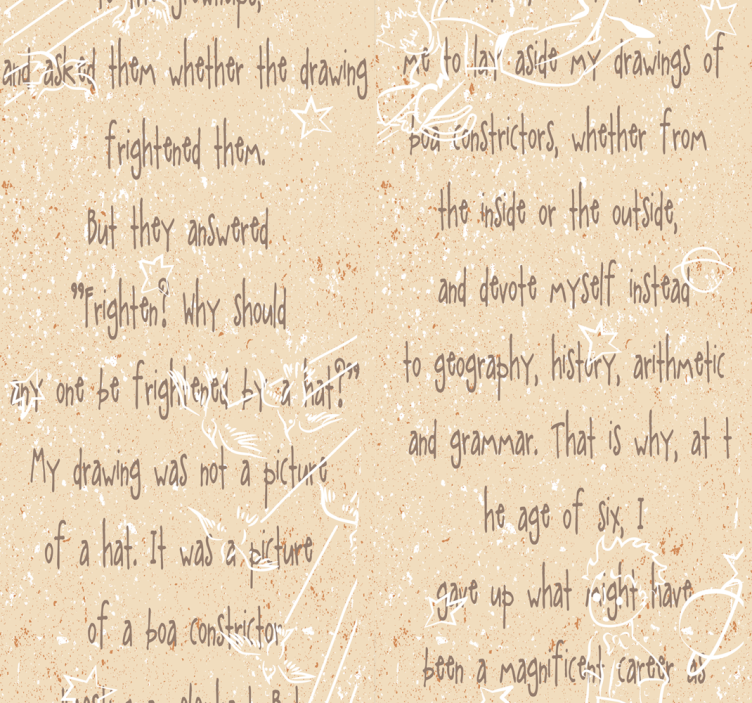 and asked them whether the drawing
frightened them.
But they answered
”Frighten? Why should
any one be frightened by a hat?”
My drawing was not a picture
of a hat. It was a picture
of a boa constrictor
me to lay aside my drawings of
boa constrictors, whether from
the inside or the outside,
and devote myself instead
to geography, history, arithmetic
and grammar. That is why, at t
he age of six, I
gave up what might have
been a magnificent career as